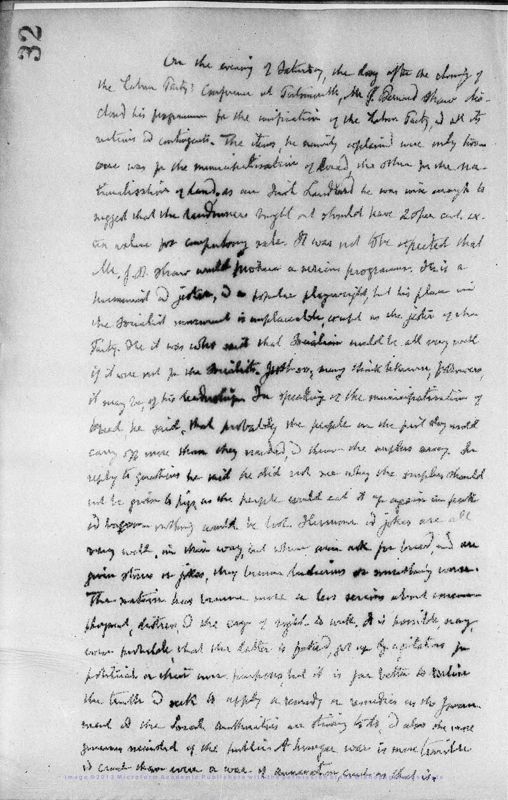 32
On the evening of Saturday, the day after the closing of
the Labour Party's Conference at Portsmouth, Mr. G. Bernard Shaw dis-
closed his programme for the unification of the Labour Party, & all its
sections & contingents. The items, he naively explained were only two
one was for the municipalisation of bread, the other for the na-
tionalisation of land, as an Irish Landlord he was wise enough to
suggest that the landowners bought out should have 20 per cent. ex-
tra value for compulsory sale. It was not to be expected that
Mr. G. B. Shaw would produce a serious programme. He is a
humourist & jester, & a popular playwright, but his place in
the Socialist movement is unplaceable, except as the jester of the
Party. He it was who said that Socialism would be all very well
if it were not for the Socialists. Just so, many think likewise, followers,
it may be, of his leadership. In speaking of the municipalisation of
bread he said, that probably the people on the first day would
carry off more than they needed, & throw the surplus away. In
reply to questions he said he did not see why the surplus should
not be given to pigs, as the people would eat it up again in pork
& bacon nothing would be lost. Humour & jokes are all
very well, in their way, but when men ask for bread, and are
given stones or jokes, they become ludicrous or something worse.
The nation has become more or less serious about unem-
ployment, distress, & the cry of right to work. It is possible, nay,
even probable, that the latter is got up by agitators for
political or their own purposes, but it is far better to
the truth & seek to apply a remedy or remedies as the Govern-
ment & the Local Authorities are striving to do, & also the more
generous minded of the public. A hunger war is more terrible
& cruel than even a war of annexation, cruel as that is.
Image ©2013 Microform Academic Publishers with the permission of